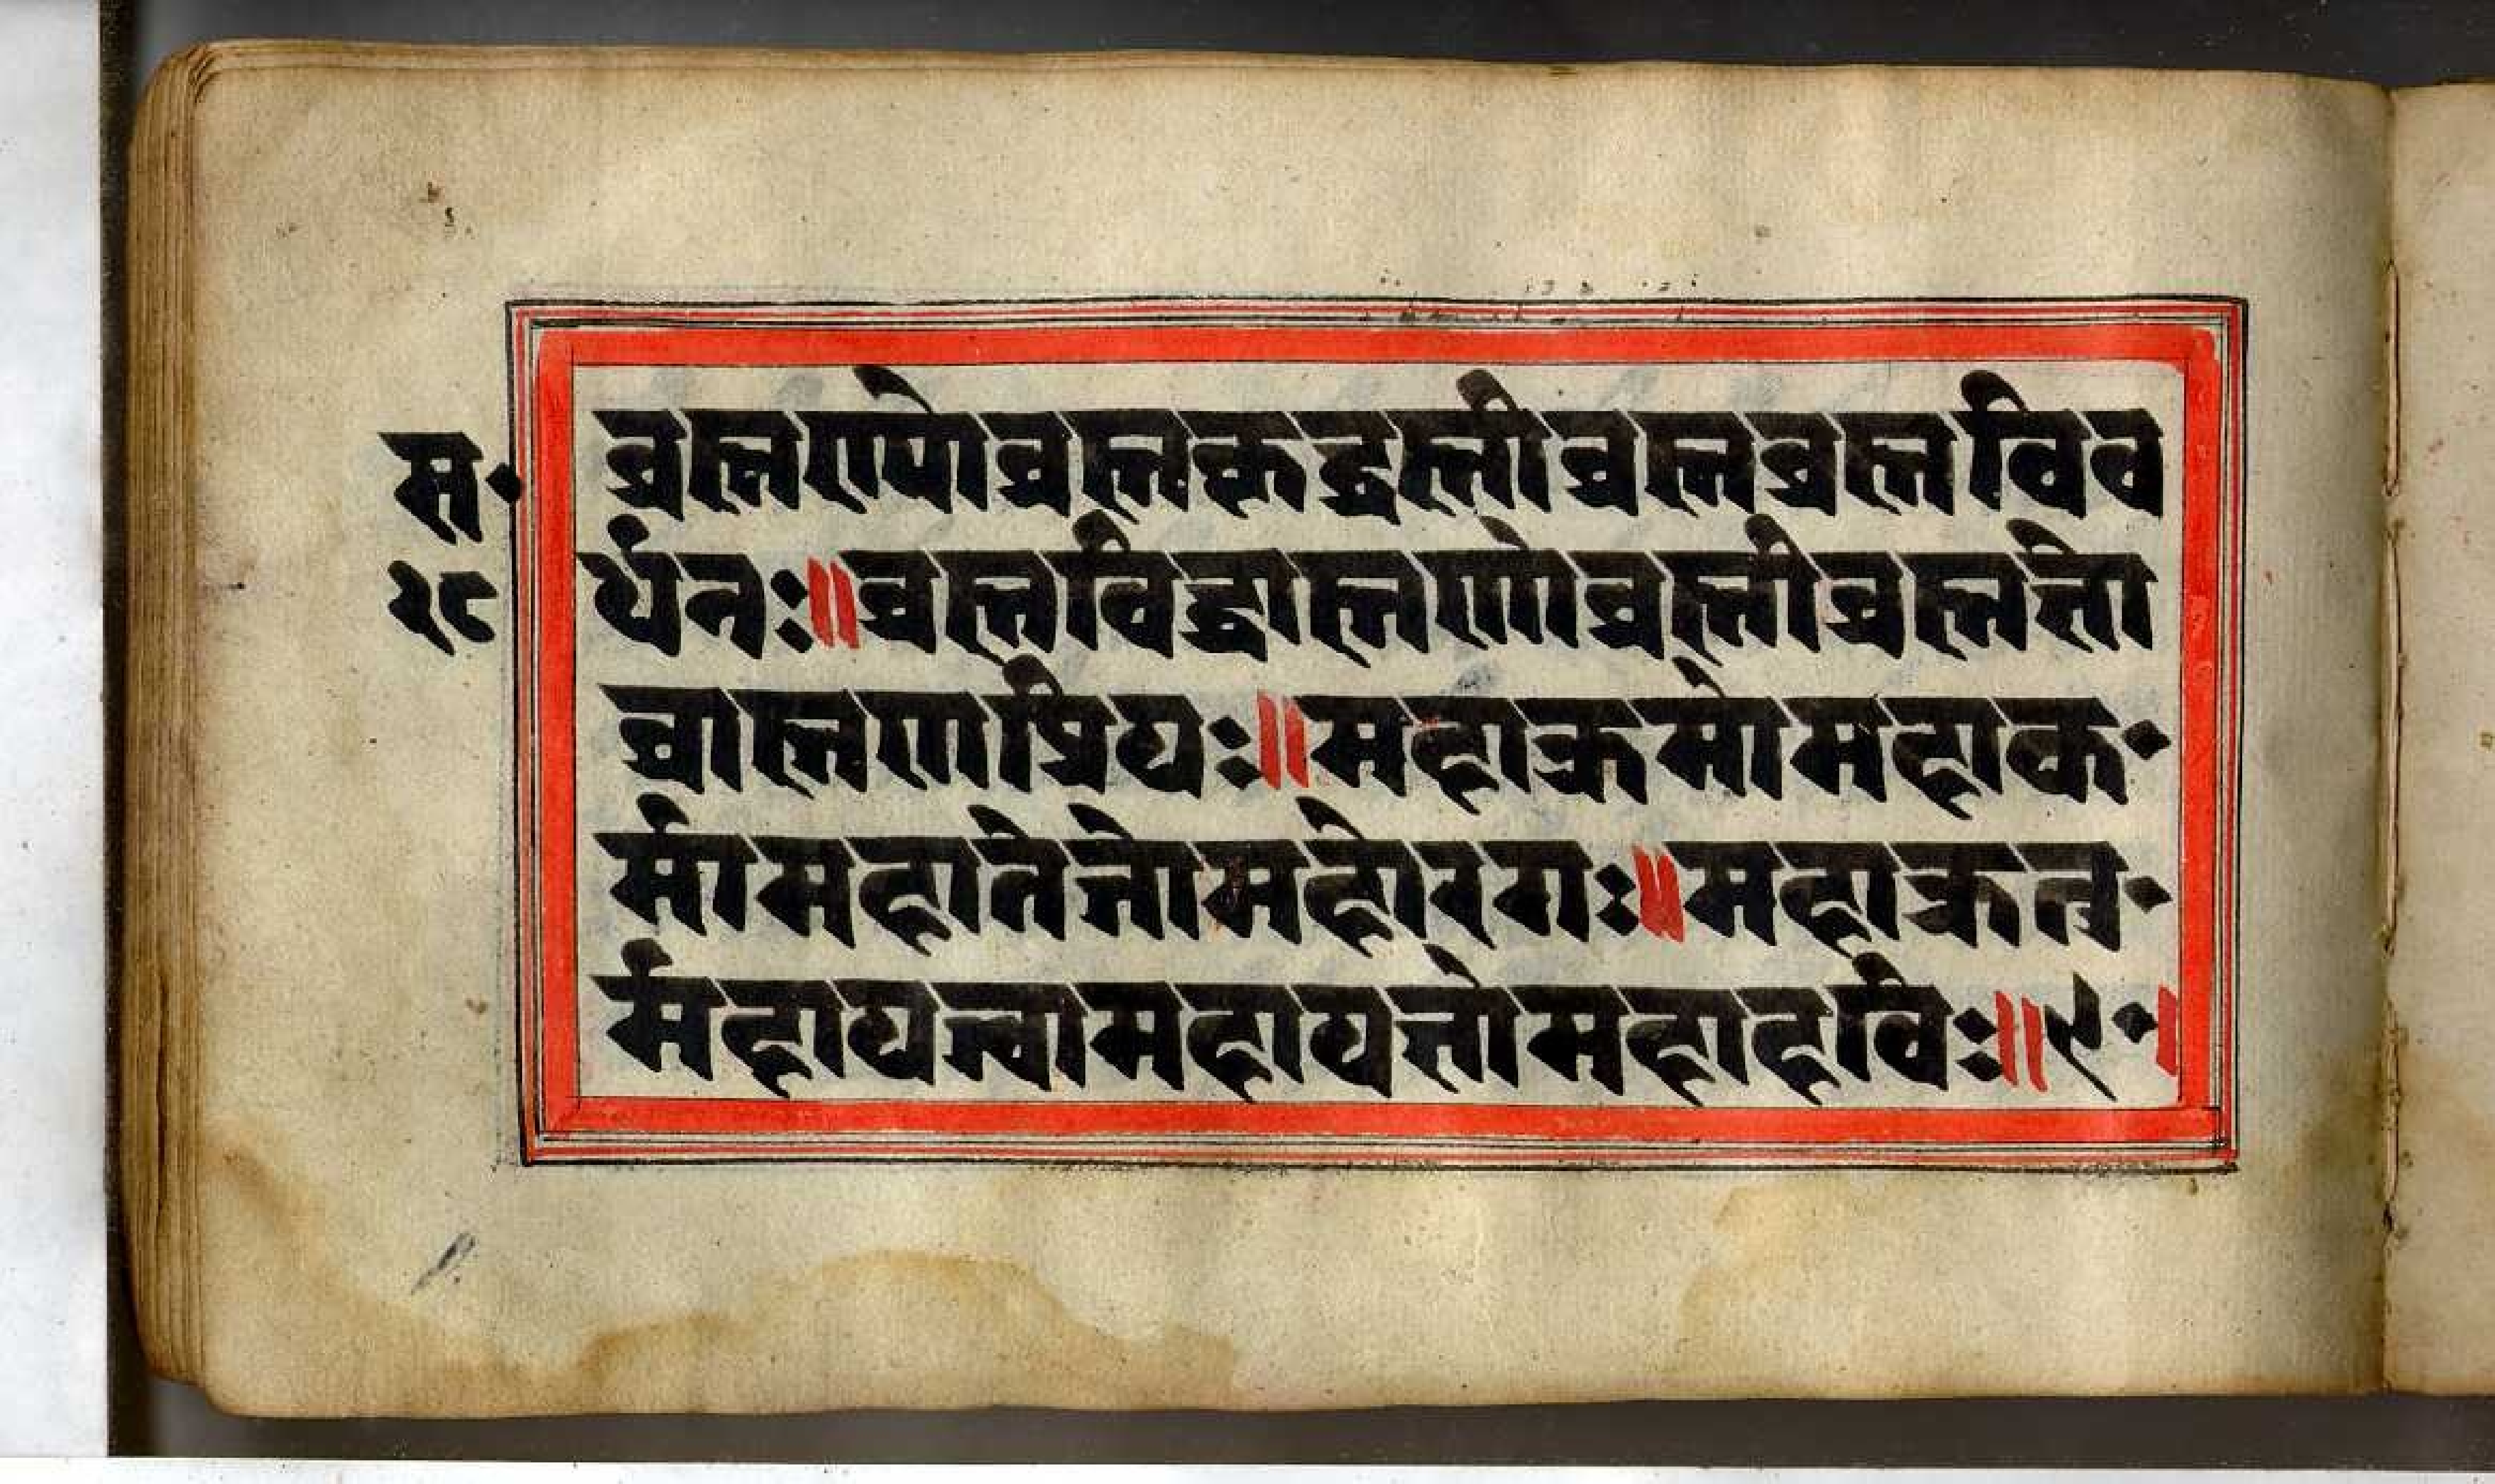 स॰
२८
ब्रह्मण्योब्रह्मकद्ब्रह्मीब्रह्मब्रह्मविव
र्धनः॥ब्रह्मविद्ब्राह्मणोब्रह्मीब्रह्मज्ञो
ब्राह्मणप्रियः॥महाक्रमोमहाक॰
र्मामहातेजोमहोरगः॥महाक्रत॰
र्महायज्वामहायज्ञोमहाहविः॥९॰।